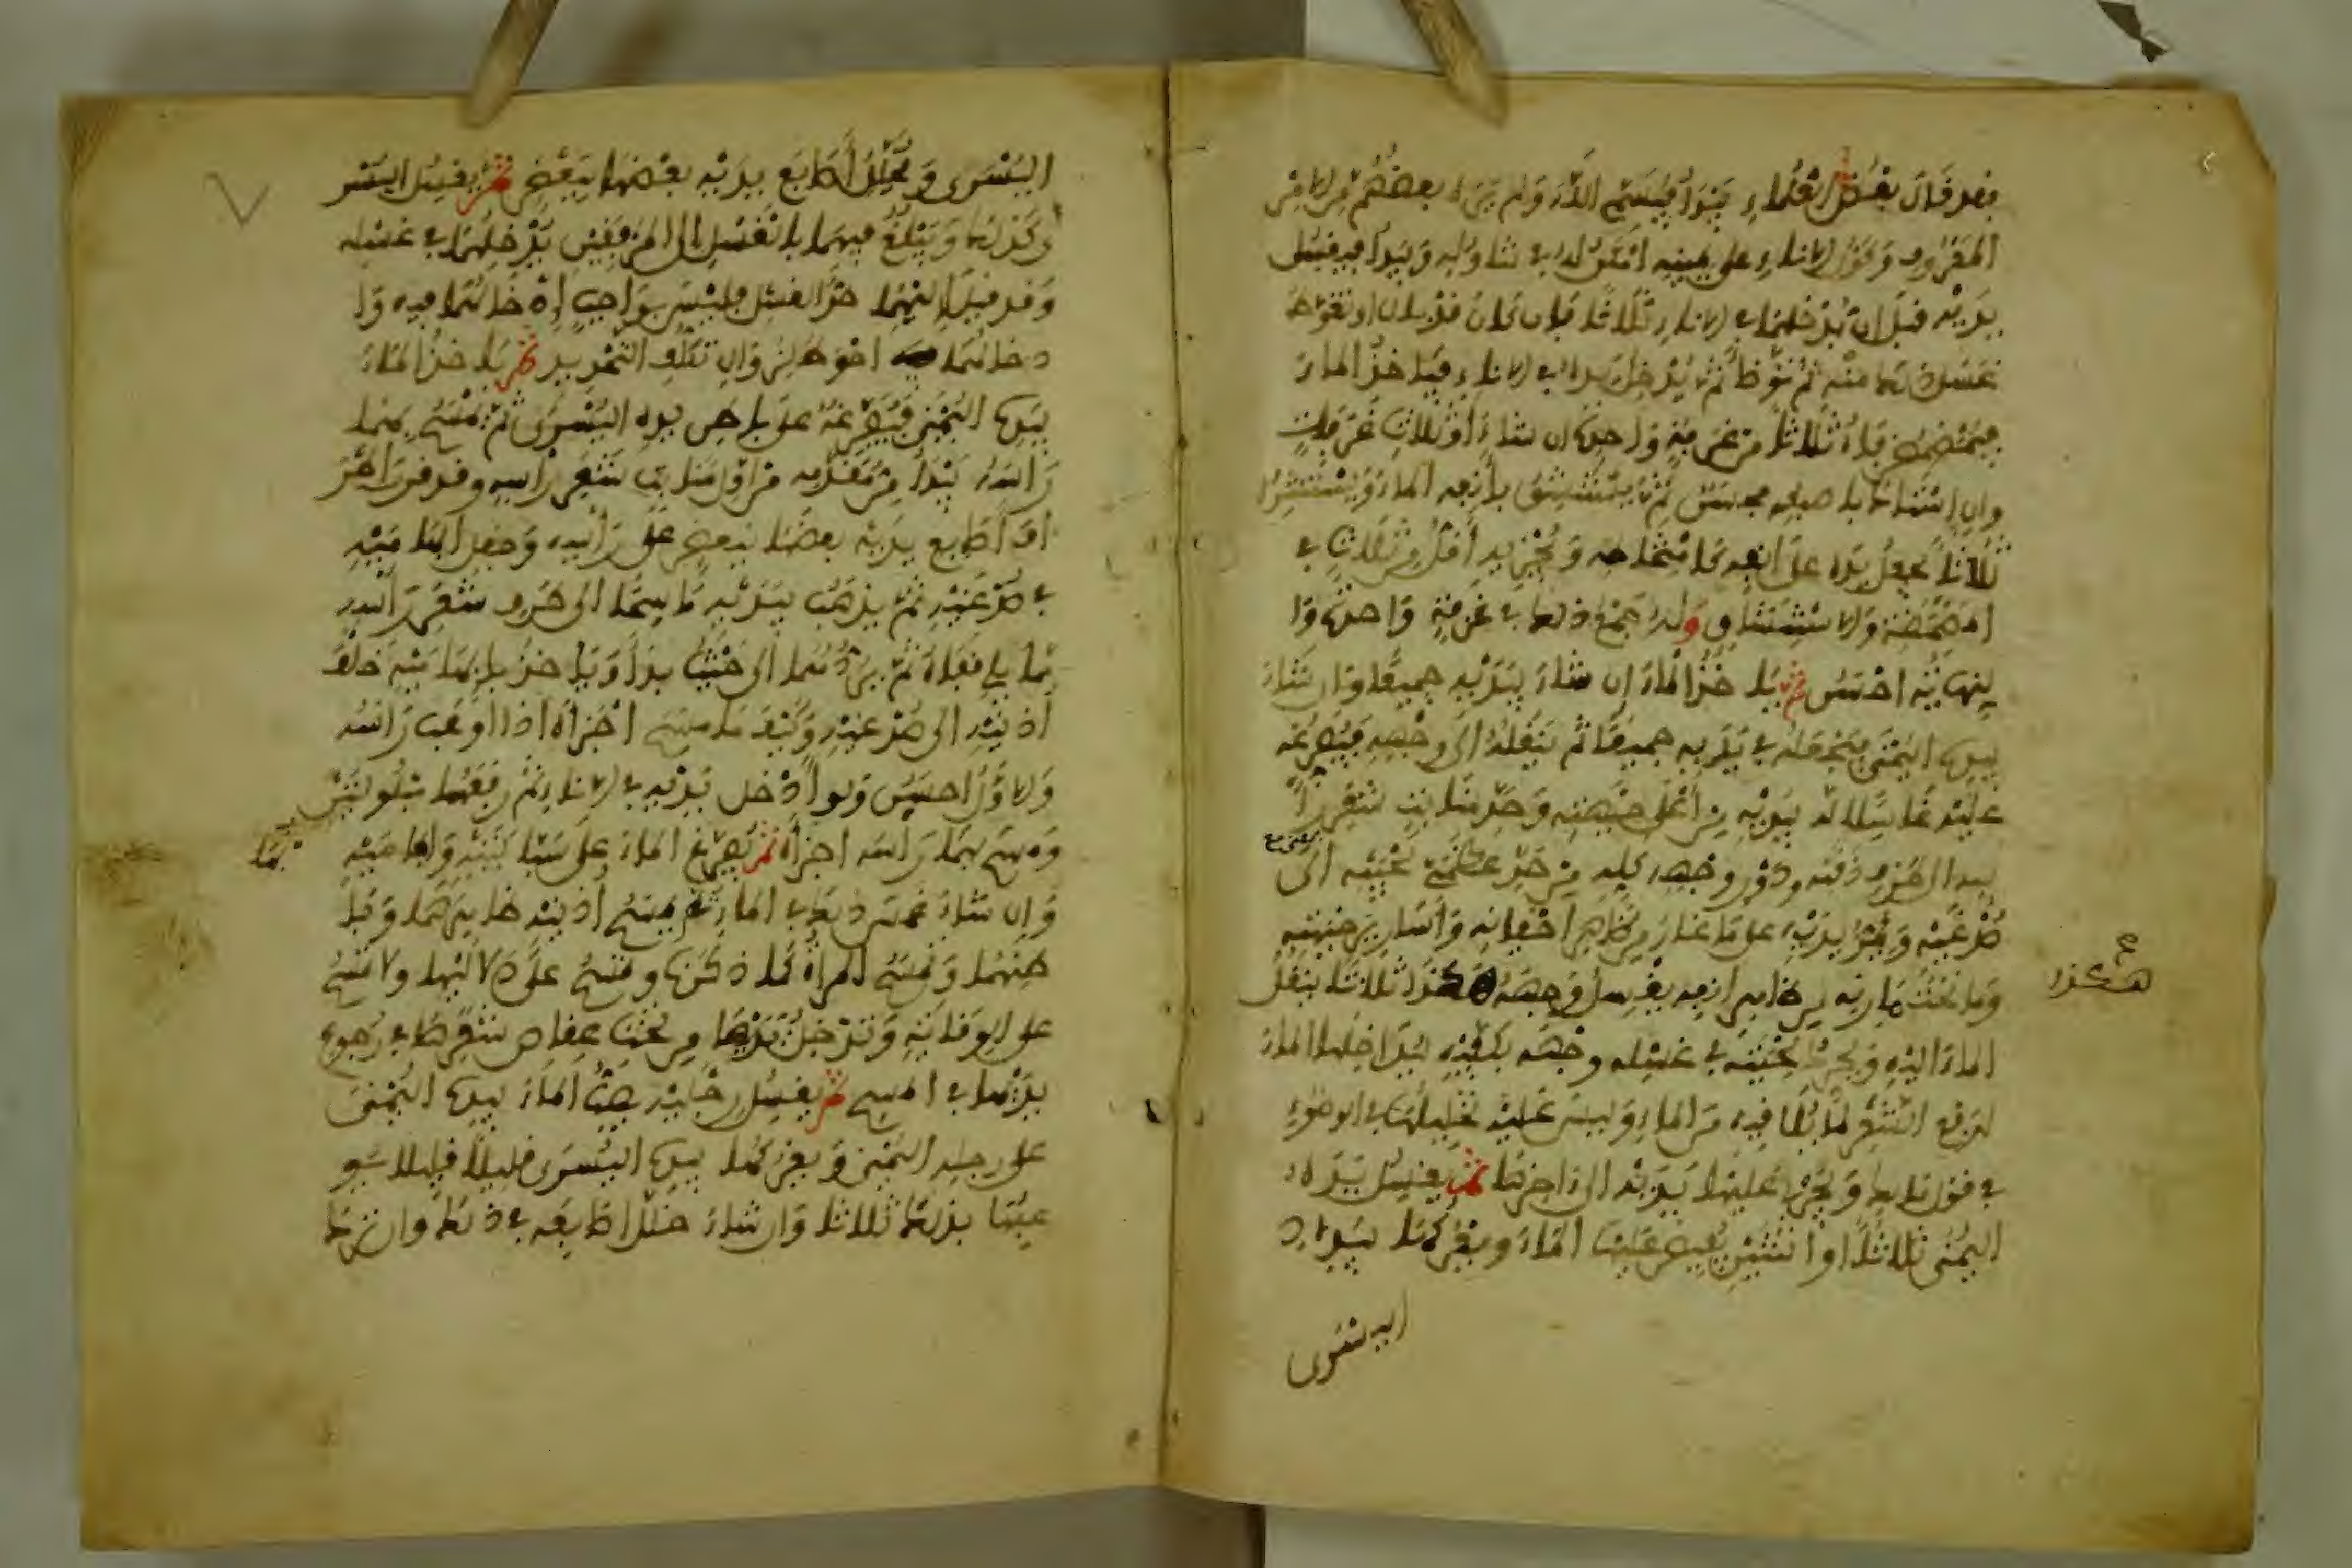 فقد قال بعض العلماء يبدأ فيسمي الله ولم يره بعضهم من الامر
المعروف وكون الاناء على يمينه امكن له في تناوله ويبدأ فيغسل
يديه قبل ان يدخلهما في الاناء ثلاثا فإن كان قد بال او تغوط
غسل ذلك منه ثم توضأ ثم يدخل يده في الاناء فياخذ الماء
فيمضمض فاه ثلاثا من غرفة واحدة ان شاء أو ثلاث غرفات
وان استاك باصبعه فحسن ثم يستنشق بأنفه الماء ويستنثره
ثلاثا يجعل يده على انفه كامتخاطه ويجزيه أقل من ثلاث في
المضمضة والاستنشاق وله جمع ذلك في غرفة واحدة وا
لنهاية احسن ثم ياخذ الماء ان شاء بيديه جميعا وان شاء
بيده اليمنى فيجعله في يديه جميعا ثم ينقله الى وجهه فيفرغه
عليه غاسلا له بيديه من أعلى جبهته وحده منابت شعر را
سه الى طرف ذقنه ودور وجهه كله من حد عظمي لحييه الى
صدغيه ويمر يديه على ما غار من ظاهر أجفانه وأسارير جبهته
وما تحت مارنه من ظاهر انفه يغسل وجهه هكذا ثلاثا ينقل
هكذا
الماء اليه ويحرك لحيته في غسل وجهه بكفيه ليداخلها الماء
لدفع الشعر لما يلاقيه من الماء وليس عليه تخليلها في الوضوء
في قول مالك ويجري عليها يديه الى اخرها ثم يغسل يده
اليمنى ثلاثا او اثنتين يفيض عليها الماء ويعركها بيده
اليسرى
اليسرى ويخلل أصابع يديه بعضها ببعض ثم يغسل اليسر
ى كذلك ويبلغ فيهما بالغسل الى المرفقين يدخلهما في غسله
وقد قيل اليهما حد الغسل فليس بواجب إدخالهما فيه وا
دخالهما احوط لزوال تكلف التحديد ثم ياخذ الماء
بيده اليمنى فيفرغه على باطن يده اليسرى ثم يمسح بهما
رأسه يبدأ من مقدمه من اول منابت شعر رأسه وقد قرن اطر
اف أصابع يديه بعضها ببعض على رأسه وجعل ابهاميه
في صدغيه ثم يذهب بيديه ماسحا الى طرف شعر رأسه
مما يلي قفاه ثم يردهما الى حيث بدأ وياخذ بابهاميه خلف
أذنيه الى صدغيه وكيف ما مسح اجزأه اذا اوعب رأسه
والاول احسن ولو أدخل يديه في الاناء ثم رفعهما مبلولتين
ومسح بهما رأسه اجزأه ثم يفرغ الماء على سبابتيه وابهاميه
وان شاء غمس ذلك في الماء ثم يمسح أذنيه ظاهرهما وبا
طنهما وتمسح المرأة كما ذكرنا وتمسح على دلاليها ولا تمسح
على الوقاية وتدخل يديها من تحت عقاص شعرها في رجوع
يديها في المسح ثم يغسل رجليه يصب الماء بيده اليمنى
على رجله اليمنى ويعركها بيده اليسرى قليلا قليلا يو
عبها بذلك ثلاثا وان شاء خلل اصابعه في ذلك وان ترك